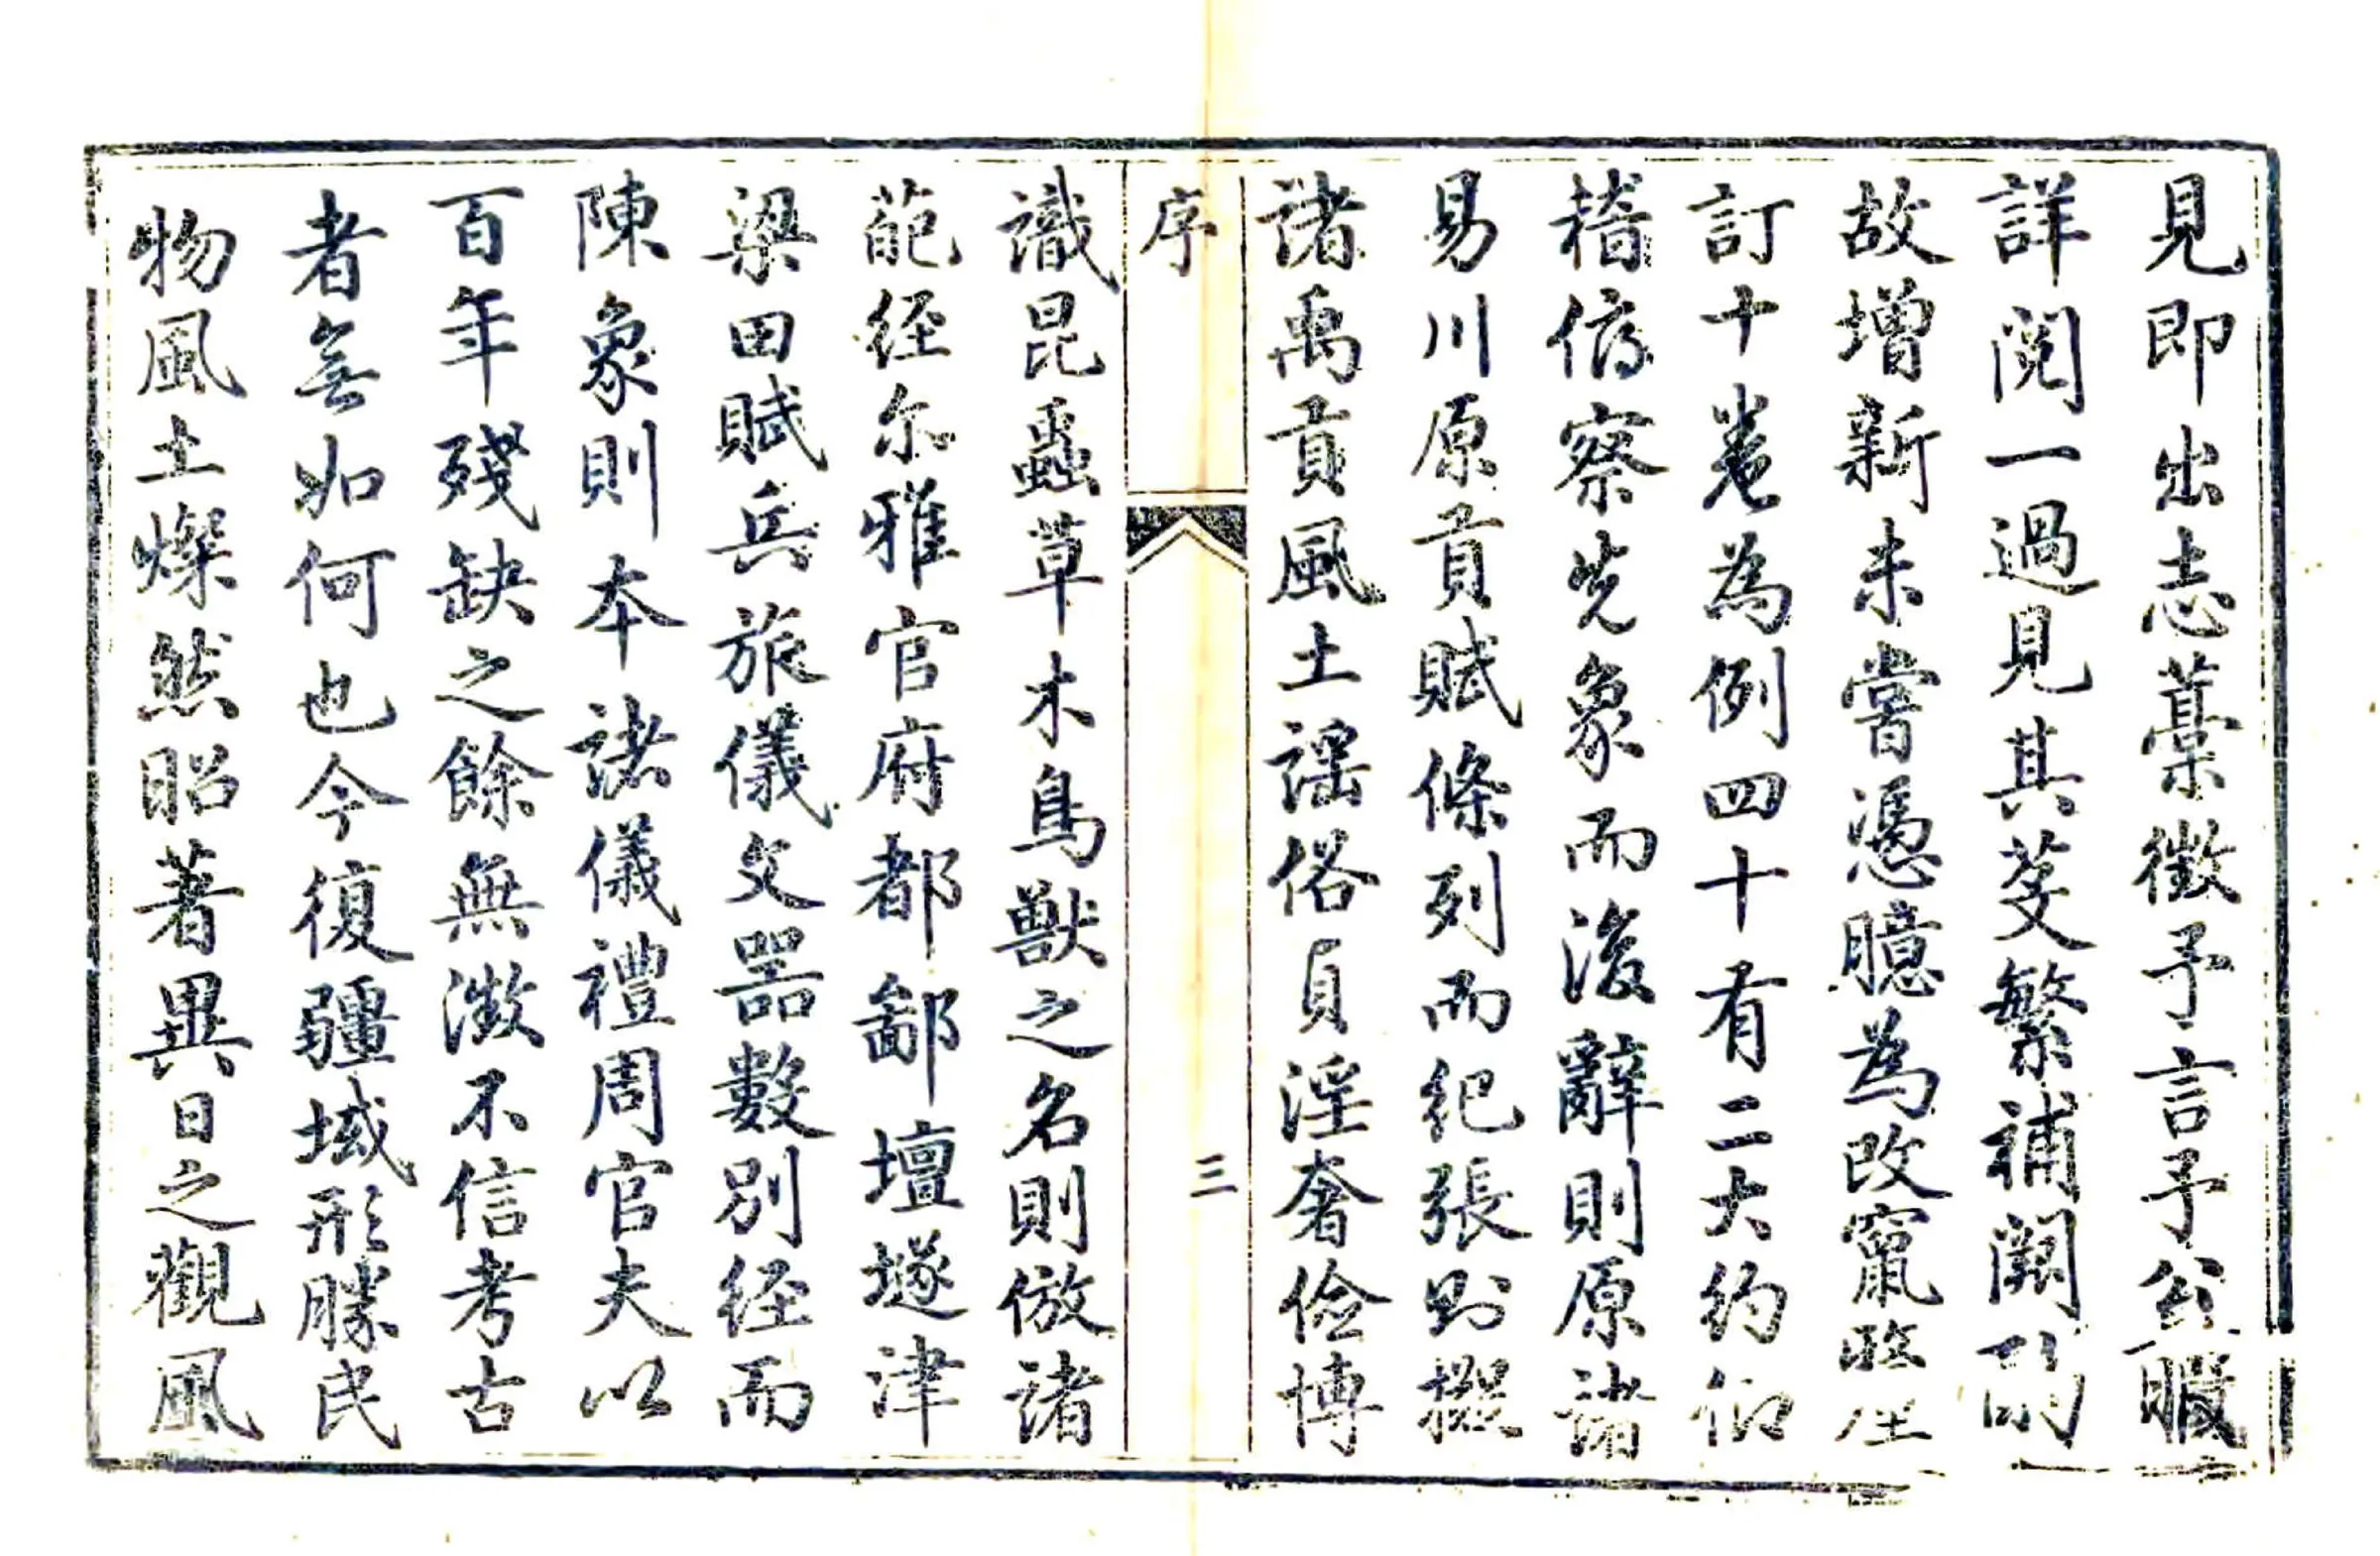 見即出志藁徵予言予公暇
詳閱一過見其芟繁補闕
故增新未嘗憑臆為改竄
訂十卷為例四十有二大約仰
稽俯察先象而後辭則原諸
易川原貢賦條列而紀張則擬
諸禹貢風土謡俗貞淫奢儉博
序
三
識昆蟲草木鳥獸之名則倣諸
葩經尔雅官府都鄙壇墜津
梁田賦兵旅儀文器數別經而
陳象則本諸儀禮周官夫以
百年殘缺之餘無徵不信考古
者無如何也今復疆域形勝民
物風土燦然昭著異日之觀風